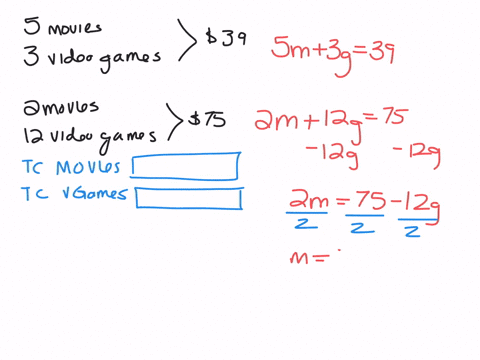 5 movies
3 video games
$39
5m+3g=39
2movies
12 video games
$75
2m+12g=75
-12g -12g
TC Movies
TC VGames
2m = 75-12g
2 2 2
m=